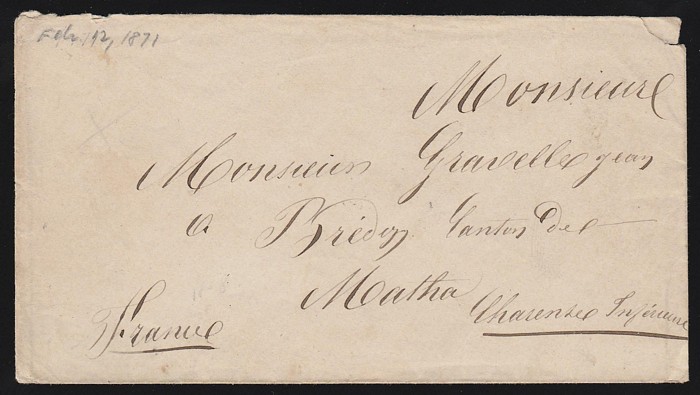 Feb. 12, 1871
Monsieure
Monsieur Gravelle jean
a Brédon Canton de
Matha Charense Inférieure
France